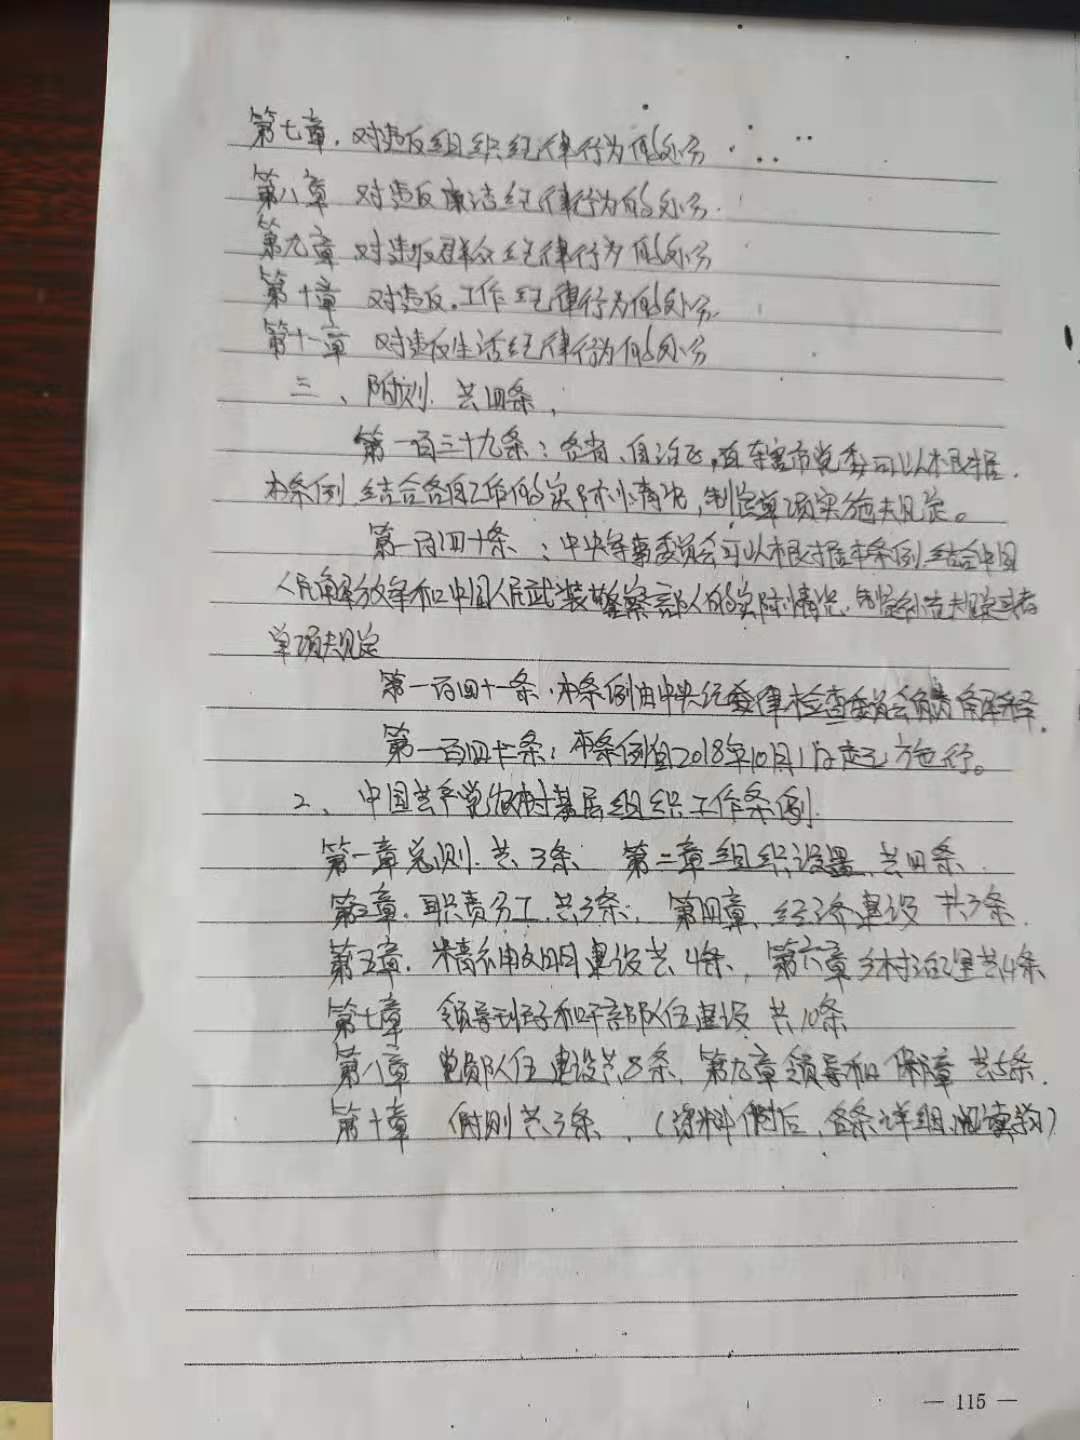 第七章.对违反组织纪律行为的处分
第八章 对违反廉洁纪律行为的处分.
第九章 对违反群众纪律行为的处分
第十章 对违反.工作纪律行为的处分.
第十一章 对违反生活纪律行为的处分
三、附则.共四条,
第一百三十九条:各省、自治区,直辖市党委可以根据.
本条例.结合各自工作的实际情况,制定单项实施规定。
第一百四十条:中央军事委员会可以根据本条例.结合中国
人民解放军和中国人民武装警察部队的实际情况.制定补充规定或者
单项规定
第一百四十一条.本条例由中央纪律检查委员会负责解释.
第一百四十二条:本条例自2018年10月1日起施行。
2、中国共产党农村基层组织工作条例.
第一章总则.共3条 第二章组织设置、共四条.
第三章.职责分工.共3条;第四章、经济建设 共3条.
第五章.精神文明建设共4条,第六章乡村治理共4条
第七章 领导班子和干部队伍建设 共10条
第八章 党员队伍建设共8条.第九章领导和保障 共5条.
第十章 附则共3条.(资料附后.各条详细阅读)
— 115 —